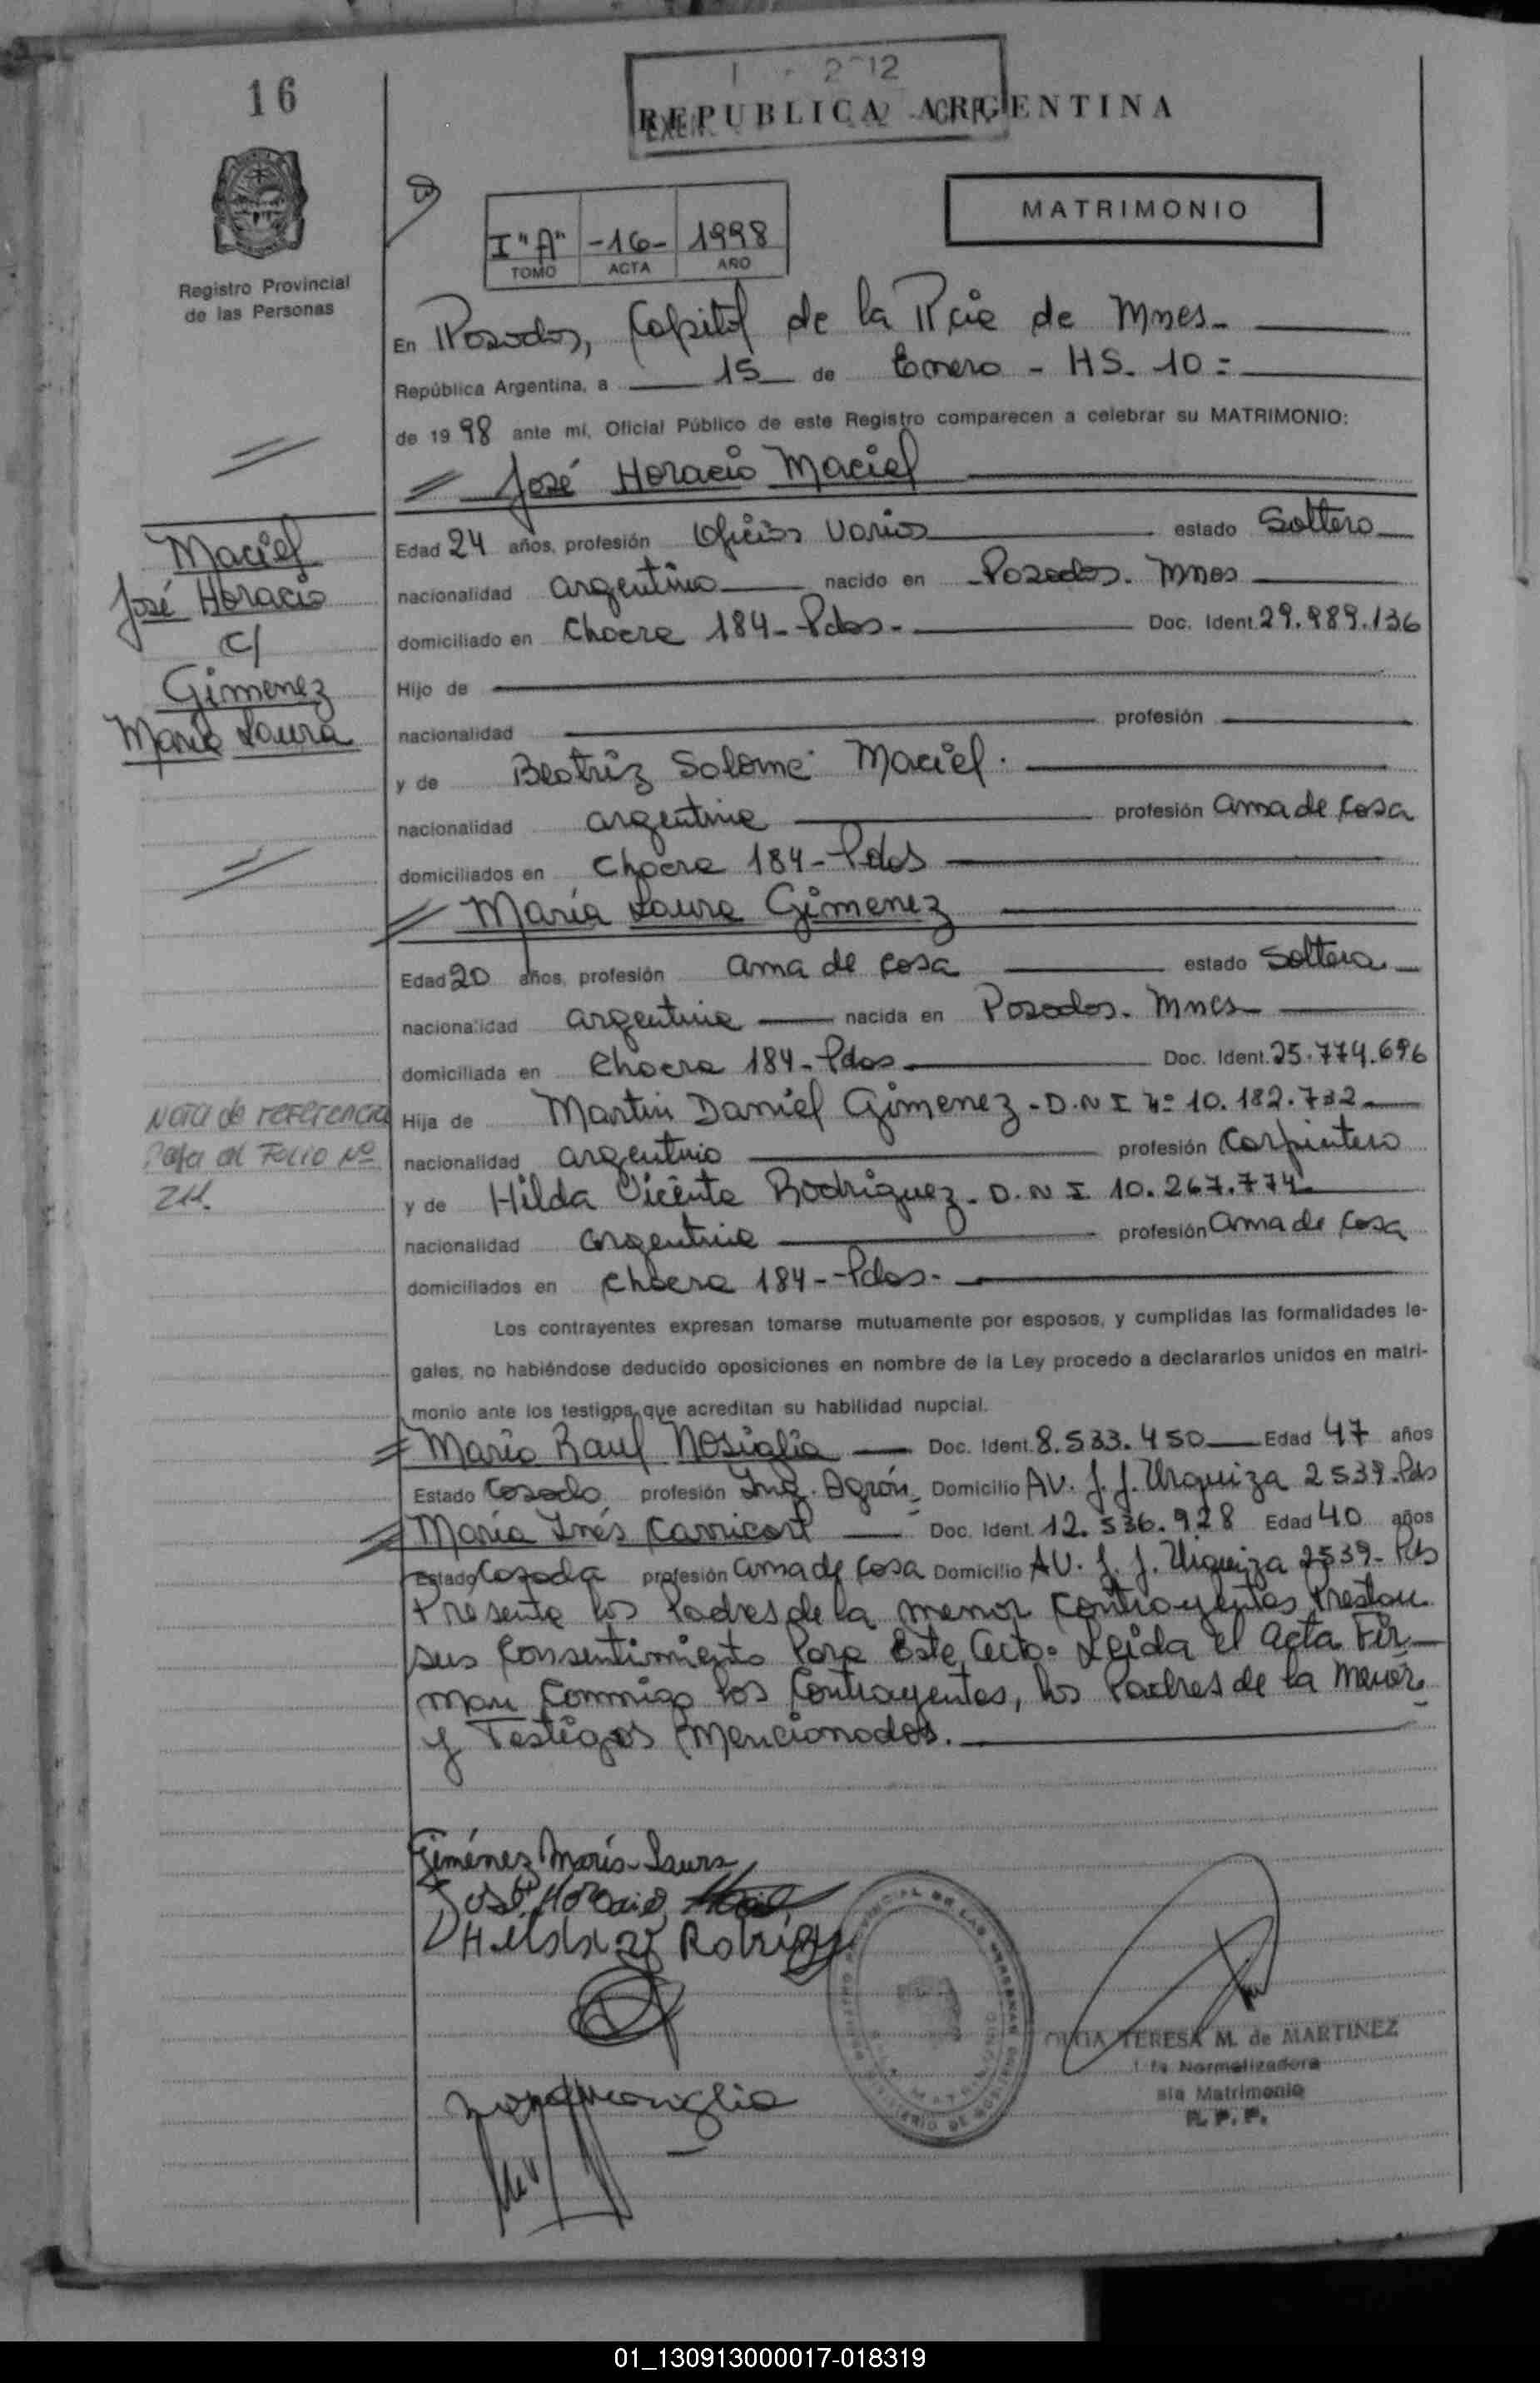 16
REPUBLICA ARGENTINA
MATRIMONIO
I "A" -16- 1998
TOMO ACTA AÑO
Registro Provincial
de las Personas
En Posadas, Capital de la Pcia de Mnes.
República Argentina, a 15 de Enero - HS. 10 =
de 1998 ante mí, Oficial Público de este Registro comparecen a celebrar su MATRIMONIO:
José Horacio Maciel
Edad 24 años, profesión Oficios Varios estado Soltero
nacionalidad argentino nacido en Posadas. Mnes
domiciliado en Chacra 184 - Pdas. - Doc. Ident. 29.989.136
Hijo de
nacionalidad profesión
y de Beatriz Salomé Maciel.
nacionalidad argentina profesión ama de casa
domiciliados en Chacra 184 - Pdas
María Laura Gimenez
Edad 20 años, profesión ama de casa estado Soltera
nacionalidad argentina nacida en Posadas. Mnes
domiciliada en Chacra 184 - Pdas Doc. Ident. 25.774.696
Hija de Martin Daniel Gimenez - D.N.I Nº 10.182.732
nacionalidad argentino profesión Carpintero
y de Hilda Vicenta Rodriguez - D.N.I 10.267.774
nacionalidad argentina profesión ama de casa
domiciliados en Chacra 184 - Pdas -
Los contrayentes expresan tomarse mutuamente por esposos, y cumplidas las formalidades le-
gales, no habiéndose deducido oposiciones en nombre de la Ley procedo a declararlos unidos en matri-
monio ante los testigos que acreditan su habilidad nupcial.
Mario Raul Nosiglia Doc. Ident. 8.533.450 Edad 47 años
Estado Casado profesión Ing. Agrón. Domicilio AV. J. J. Urquiza 2539 - Pds
María Inés Carricart Doc. Ident. 12.536.928 Edad 40 años
Estado Casada profesión ama de casa Domicilio AV. J. J. Urquiza 2539 - Pds
Presente los Padres de la menor Contrayentes Prestan
sus Consentimiento Para Este Acto. Leída el acta Fir-
man Conmigo los Contrayentes, los Padres de la Menor
y Testigos Mencionados.
Maciel
José Horacio
C/
Gimenez
María Laura
Nota de referencia
Pasa al Folio Nº
211.
Giménez María Laura
José Horacio
TERESA M. de MARTINEZ
Normalizadora
Matrimonio
R. P. P.
01_130913000017-018319